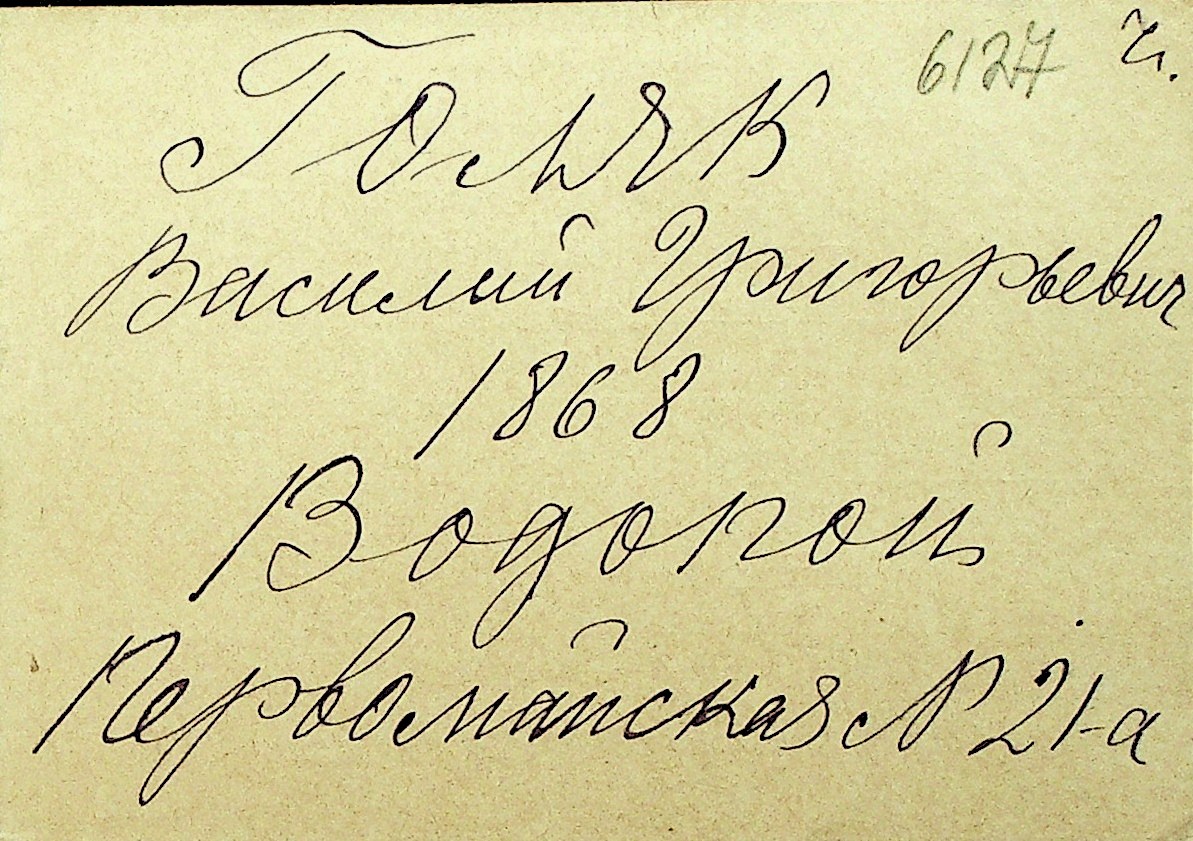 6127 ч.
Голяк
Василий Григорьевич
1868
Водопой
Первомайская № 21-а